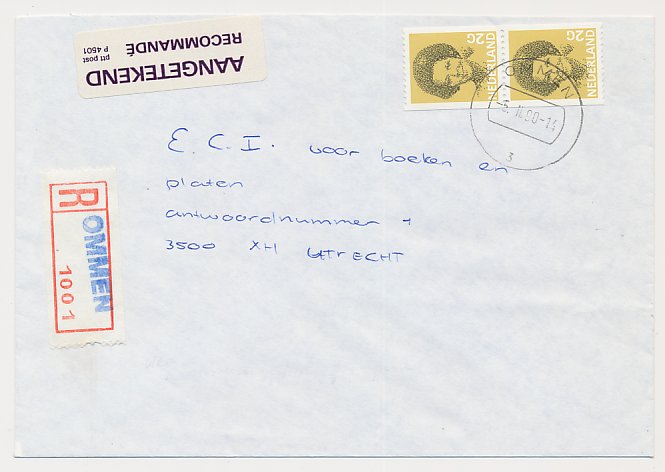 AANGETEKEND
RECOMMANDÉ
ptt post
P 4501
2G NEDERLAND
2G NEDERLAND
OMMEN
-5.II.90-14
3
E.C.I. voor boeken en
platen
antwoordnummer 1
3500 XH UTRECHT
R
OMMEN
1001